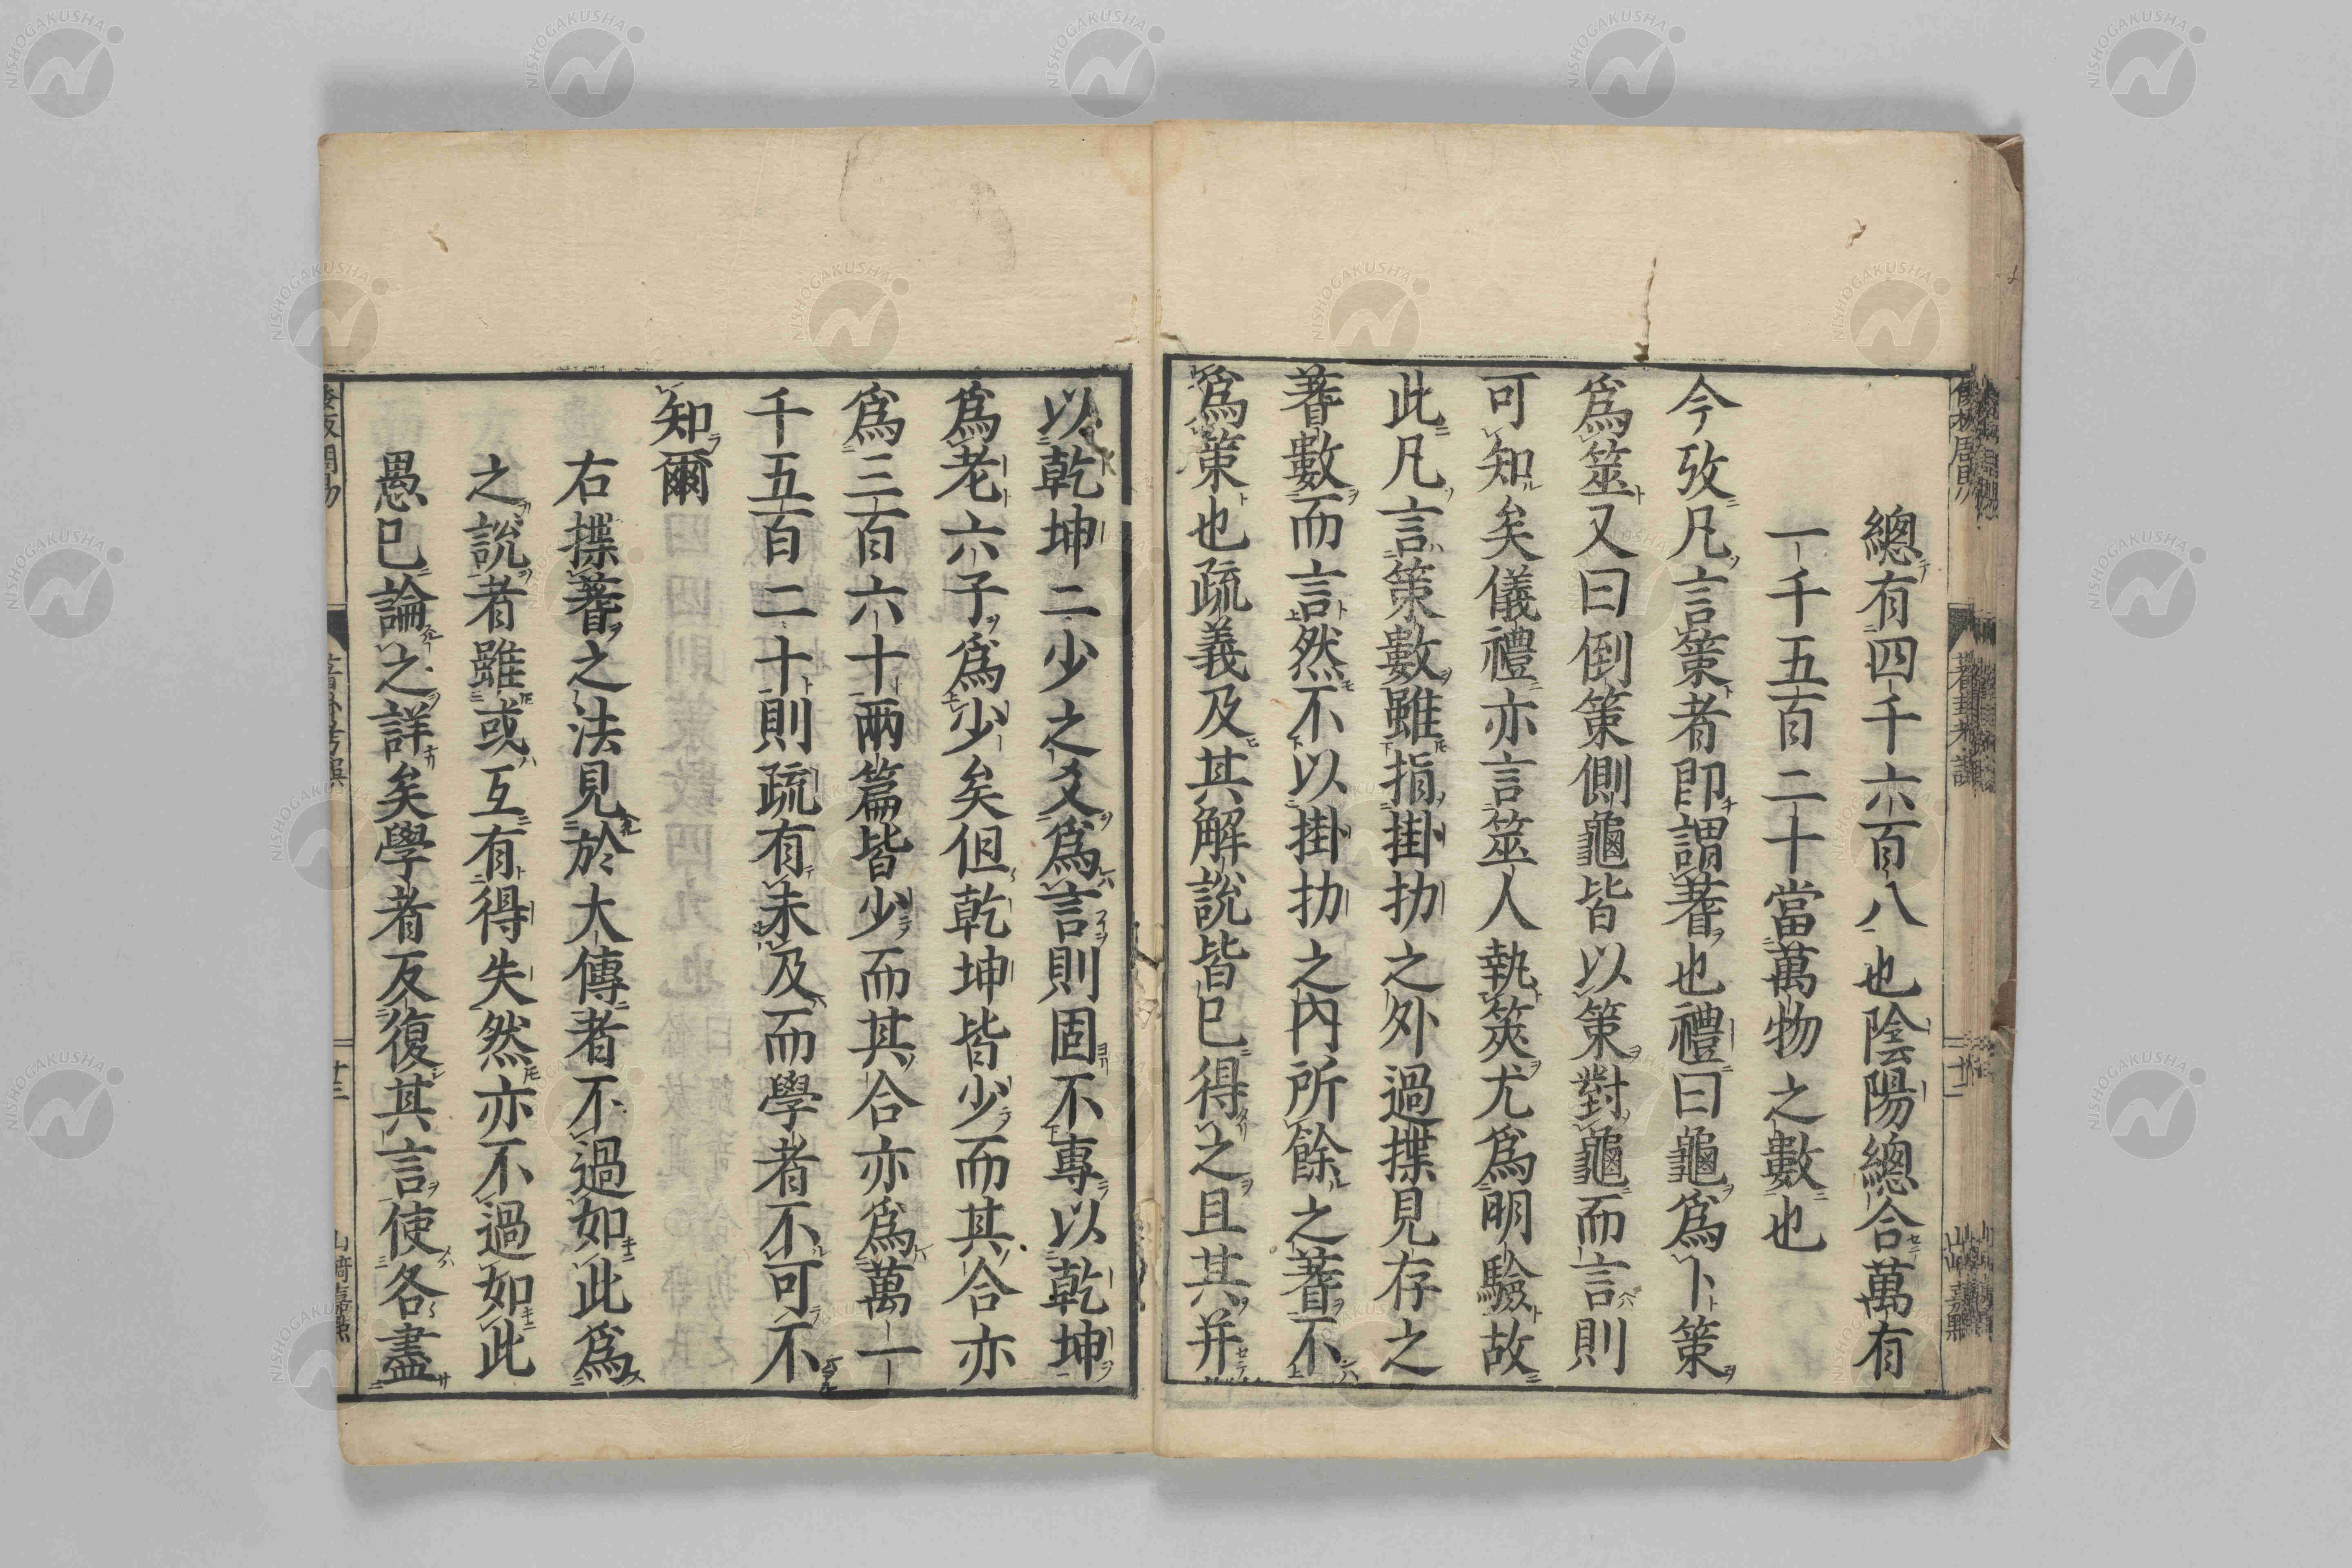 總有四千六百八也陰陽總合萬有
一千五百二十當萬物之數也
今攷凡言策者即謂蓍也禮曰龜爲卜策
爲筮又曰倒策側龜皆以策對龜而言則
可知矣儀禮亦言筮人執筴尤爲明驗故
此凡言策數雖指掛扐之外過揲見存之
蓍數而言然不以掛扐之內所餘之蓍不
爲策也疏義及其解說皆已得之且其并
以乾坤二少之爻爲言則固不專以乾坤
爲老六子爲少矣但乾坤皆少而其合亦
爲三百六十兩篇皆少而其合亦爲萬一
千五百二十則疏有未及而學者不可不
知爾
右揲蓍之法見於大傳者不過如此爲
之說者雖或互有得失然亦不過如此
愚已論之詳矣學者反復其言使各盡
蓍卦考誤
十三
山嵜嘉點
NISHOGAKUSHA